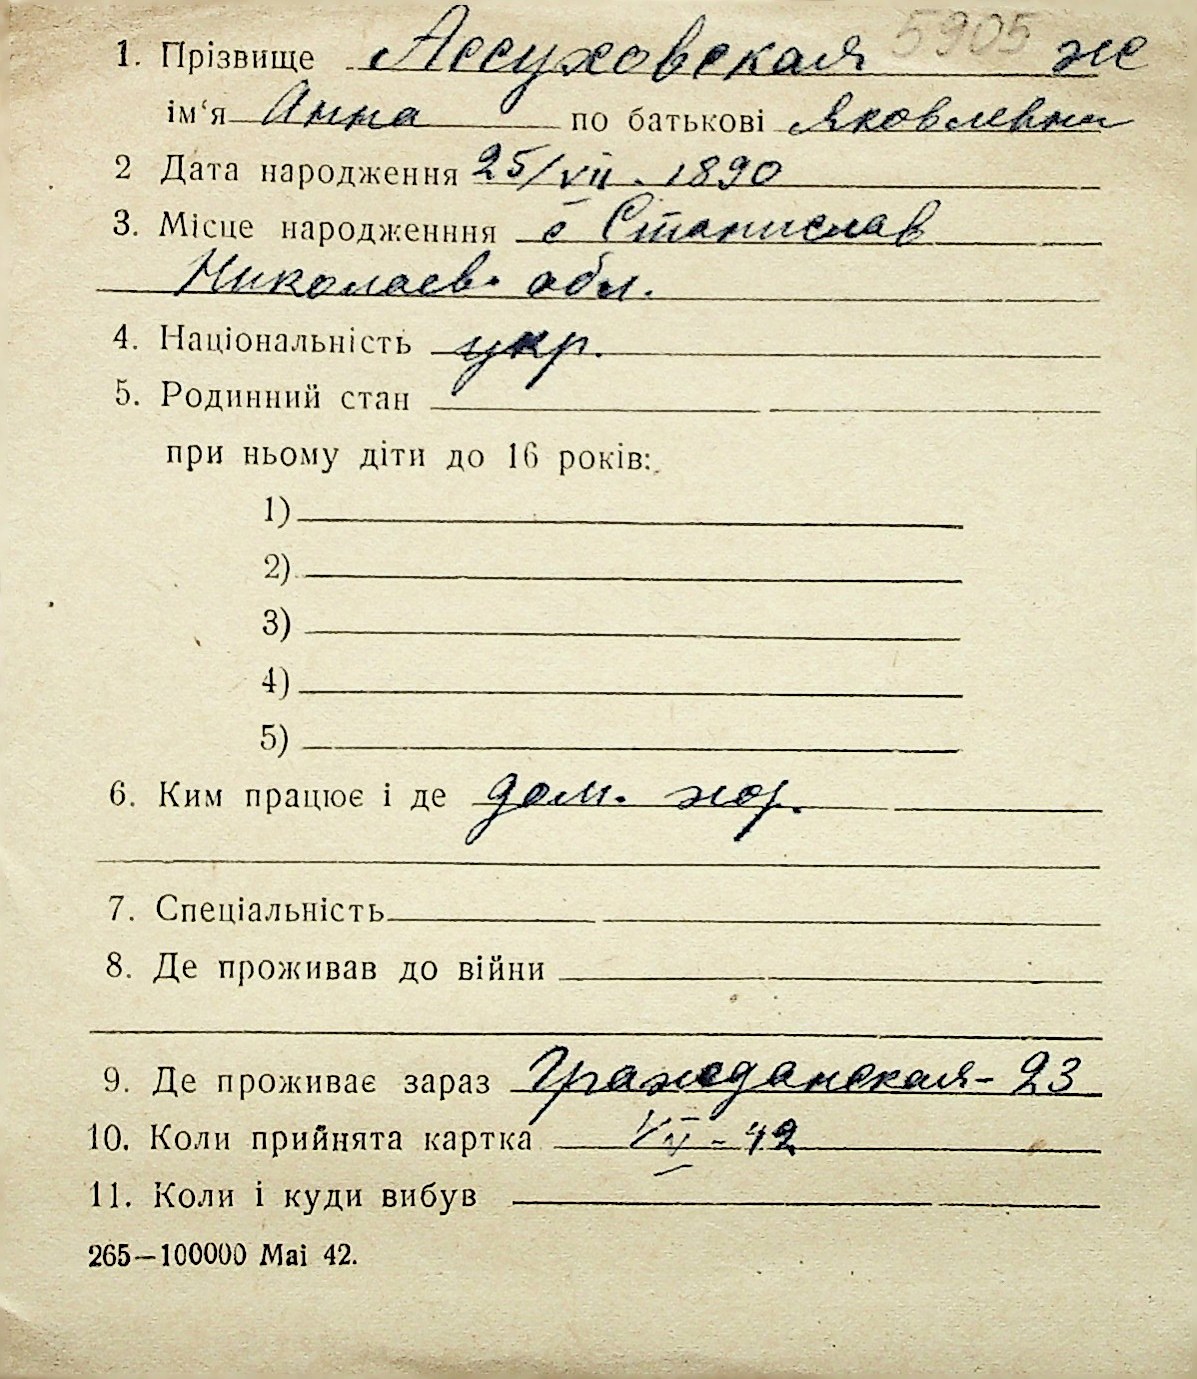 1. Прізвище Ассуховская 5905 же
ім‘я Анна по батькові Яковлевна
2 Дата народження 25/VII - 1890
3. Місце народженння с Станислав
Николаев. обл.
4. Національність укр.
5. Родинний стан
при ньому діти до 16 років:
1)
2)
3)
4)
5)
6. Ким працює і де дом. хоз.
7. Спеціальність
8. Де проживав до війни
9. Де проживає зараз Гражданская - 23
10. Коли прийнята картка VII - 42
11. Коли і куди вибув
265—100000 Mai 42.